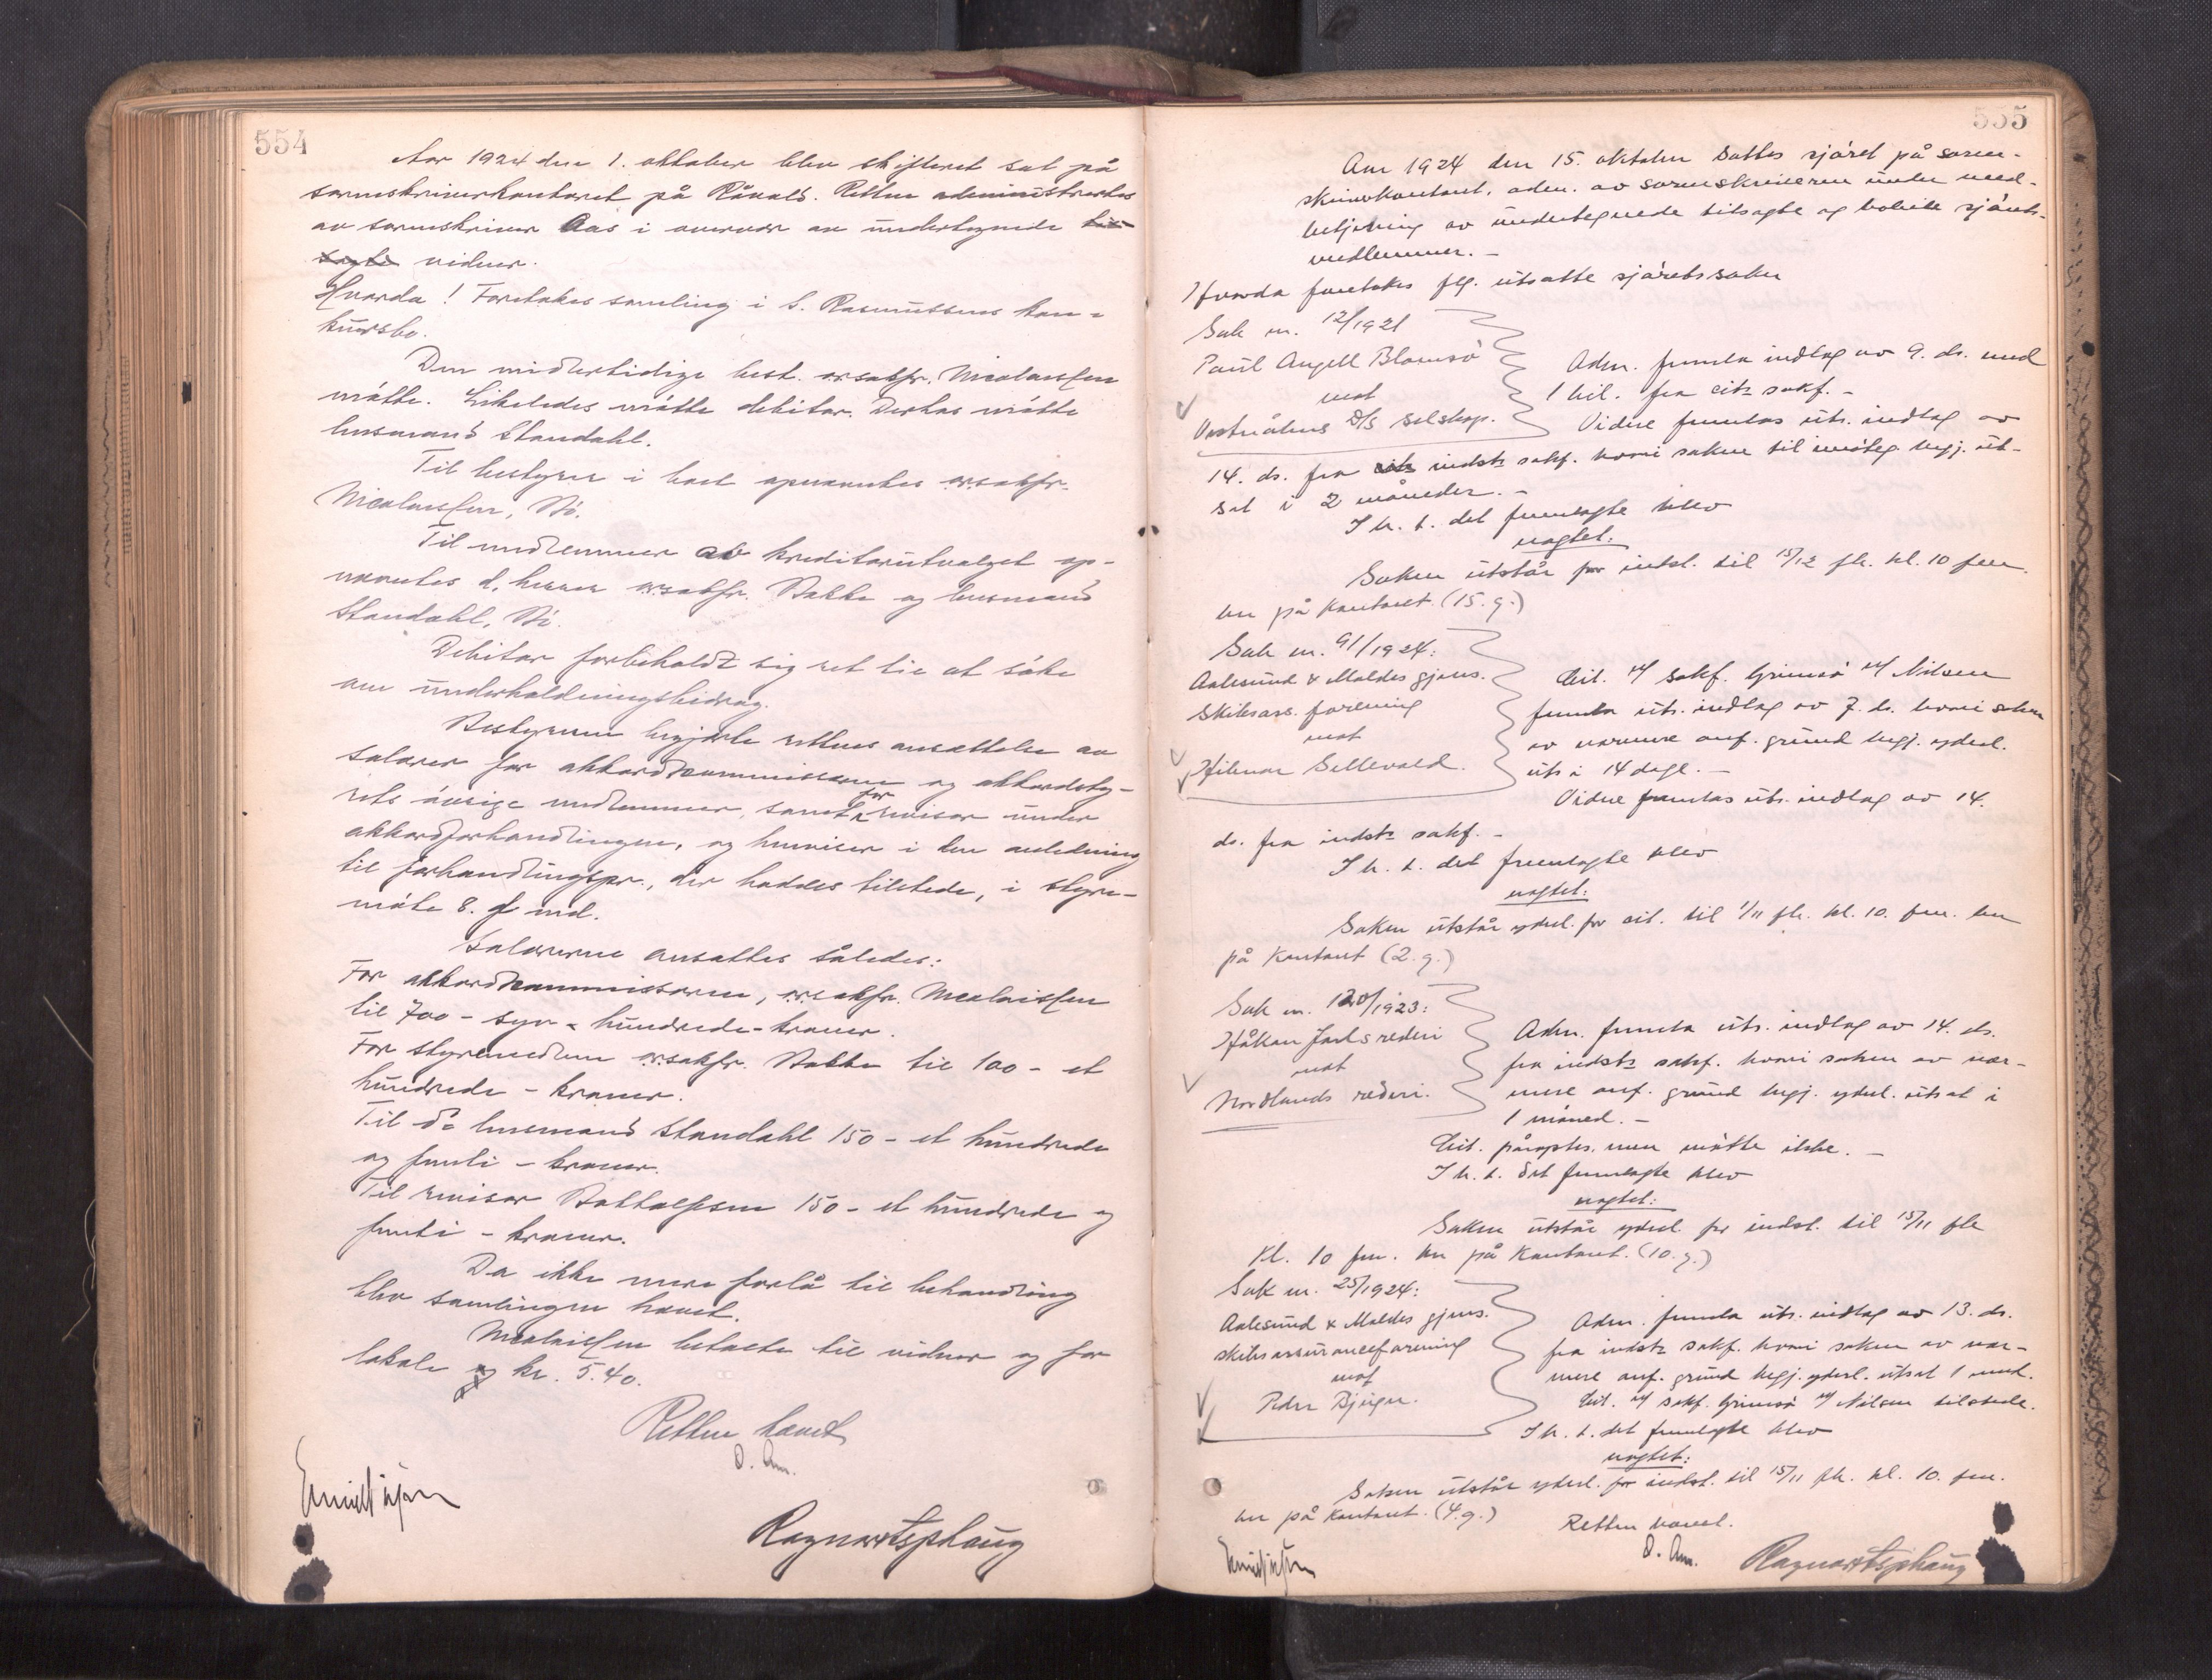 554
Aar 1924 den 1. oktober blev skifteret sat på
sorenskriverkontoret på Råkald. Retten administrertes
av sorenskriver Aas i overvær av undertegnede til-
sagte vidner.
Hvorda! Foretokes samling i S. Rasmussens kon-
kursbo.
Den midlertidige best. orsakfr. Nicolaissen
møtte. Likeledes møtte debitor. Derhos møtte
lensmand Standahl.
Til bestyrer i boet opnevntes orsakfr.
Nicolaissen,
Til medlemmer av kreditorutvalget op-
nevntes d. herrer orsakfr. Stokke og lensmand
Standahl,
Debitor forbeholdt sig ret til at søke
om underholdningsbidrag.
Bestyreren begjærte rettens ansættelse av
salærer for akkordkommissæren og akkordsty-
rets øvrige medlemmer, samt for revisor under
akkordforhandlingen, og henviser i den anledning
til forhandlingspr., der haddes tilstede, i styre-
møte 8. f md.
Salærerne ansattes således:
For akkordkommissæren, orsakfr. Nicolaissen
til 700 - syv - hundrede - kroner.
For styremedlem orsakfr. Stokke til 100 - et
hundrede - kroner.
Til do lensmand Standahl 150 - et hundrede
og femti - kroner.
Til revisor 150 - et hundrede og
femti - kroner.
Da ikke mere forlå til behandling
blev samlingen hævet.
Nicolaissen betalte til vidner og for
lokale kr. 5.40.
Retten hævet
O. Aas.
Ragnar Tsphaug
555
Aar 1924 den 15. oktober sattes sjøret på soren-
skriverkontoret, adm. av sorenskriveren under med-
betjening av undertegnede tilsagte og valgte sjørets-
medlemmer. -
Hvorda foretokes flg. utsatte sjøretssaker
Sak nr. 12/1921
Paul Angell Blomsø
mot
Vesteraalens D/S selskap.
Adm. fremla indlæg av 9. ds. med
1 bil. fra cits sakf. -
Videre fremlas uts. indlæg av
14. ds. fra cits indsts sakf. hvori saken til imøteg. begj. ut-
sat i 2 måneder. -
I h. t. det fremlagte blev
vogtet:
Saken utstår for indst. til 15/12 fk. kl. 10 fm.
her på kontoret. (15. g.)
Sak nr. 91/1924:
Aalesund & Moldes gjens.
Skibsass. forening
mot
Hilmar Sellevold.
Cit. v/ sakf. Grimsø v/ Nilsen
fremla uts. indlæg av 7. ds. hvori saken
av nærmere anf. grund begj. yderl.
uts i 14 dage. -
Videre fremlas uts. indlæg av 14.
ds. fra indsts sakf. -
I h. t. det fremlagte blev
vogtet:
Saken utstår yderl. for cit. til 1/11 fk. kl. 10. fm. her
på kontoret (2. g.)
Sak nr. 120/1923:
Håkon Jarls rederi
mot
Nordlands rederi.
Adm. fremla uts. indlæg av 14. ds.
fra indsts sakf. hvori saken av nær-
mere anf. grund begj. yderl. utsat i
1 måned. -
Cit. påroptes men møtte ikke. -
I h. t. det fremlagte blev
vogtet:
Saken utstår yderl. for indst. til 15/11 fk
kl. 10 fm. her på kontoret. (10. g.)
Sak nr. 25/1924:
Aalesund & Moldes gjens.
skibsassuranceforening
mot
Peder Bjerger.
Adm. fremla uts. indlæg av 13. ds.
fra indsts sakf. hvori saken av nær-
mere anf. grund begj. yderl. utsat 1 mnd.
Cit. v/ sakf. Grimsø v/ Nilsen tilstede.
I h. t. det fremlagte blev
vogtet:
Saken utstår yderl. for indst. til 15/11 fk. kl. 10. fm.
her på kontoret. (4. g.)
Retten hævet.
O. Aas.
Ragnar Tsphaug